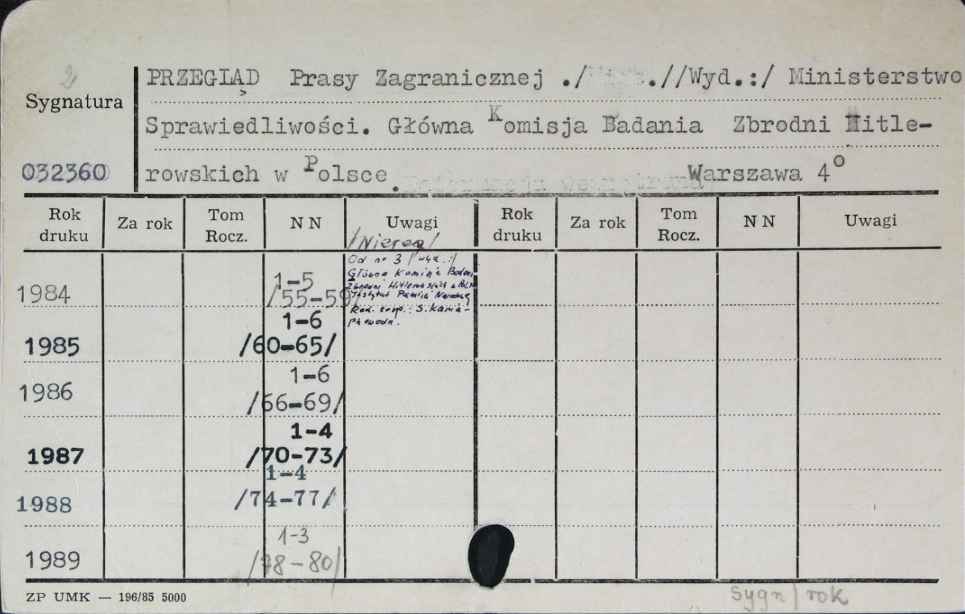 2
PRZEGLĄD Prasy Zagranicznej ./ .//Wyd.:/ Ministerstwo
Sygnatura
Sprawiedliwości. Główna Komisja Badania Zbrodni Hitle-
032360
rowskich w Polsce. Warszawa 4°
Rok druku Za rok Tom Rocz. NN Uwagi Rok druku Za rok Tom Rocz. NN Uwagi
/Niereg/
Od nr 3
Główna Komisja Badania
Zbrodni Hitlerowskich
Instytut Pamięci Narodowej
Red. zesp.: S. Kania-
1984 1-5
/55-59/
1985 1-6
/60-65/
1986 1-6
/66-69/
1987 1-4
/70-73/
1988 1-4
/74-77/
1989 1-3
/78-80/
ZP UMK — 196/85 5000
sygn/rok